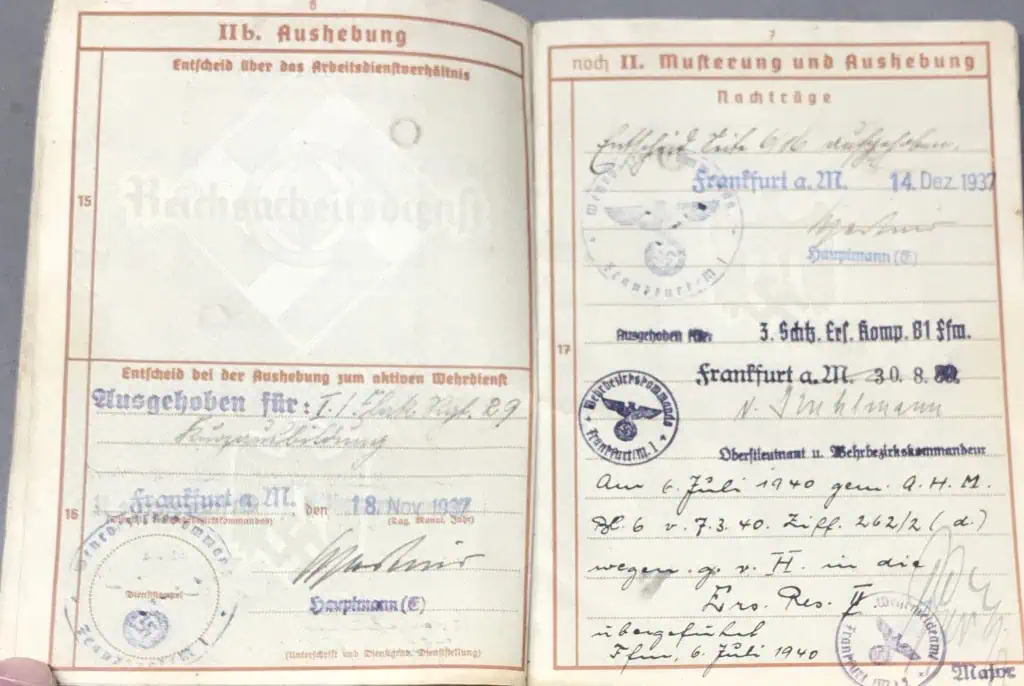 6
IIb. Aushebung
Entscheid über das Arbeitsdienstverhältnis
Reichsarbeitsdienst
15
Entscheid bei der Aushebung zum aktiven Wehrdienst
Ausgehoben für: I./Flak Rgt. 29
Kurzausbildung
16
Frankfurt a. M. den 18. Nov. 1937
(Tag, Monat, Jahr)
Dienststempel
Hauptmann (E)
(Unterschrift und Dienstgrad, Dienststellung)
7
noch II. Musterung und Aushebung
Nachträge
17
Entscheid Seite 6/16 aufgehoben.
Frankfurt a. M. 14. Dez. 1937
Hauptmann (E)
Frankfurt/M. I
Ausgehoben für: 3. Schtz. Ers. Komp. 81 Ffm.
Frankfurt a. M. 30. 8.
Wehrbezirkskommando
Frankfurt/M. I
Oberstleutnant u. Wehrbezirkskommandeur
Am 6. Juli 1940 gem. A. H. M.
Bl. 6 v. 7.3.40. Ziff. 262/2 (d.)
wegen g. v. H. in die
Ers. Res. II
übergeführt
Ffm, 6. Juli 1940
Wehrmeldeamt
Major